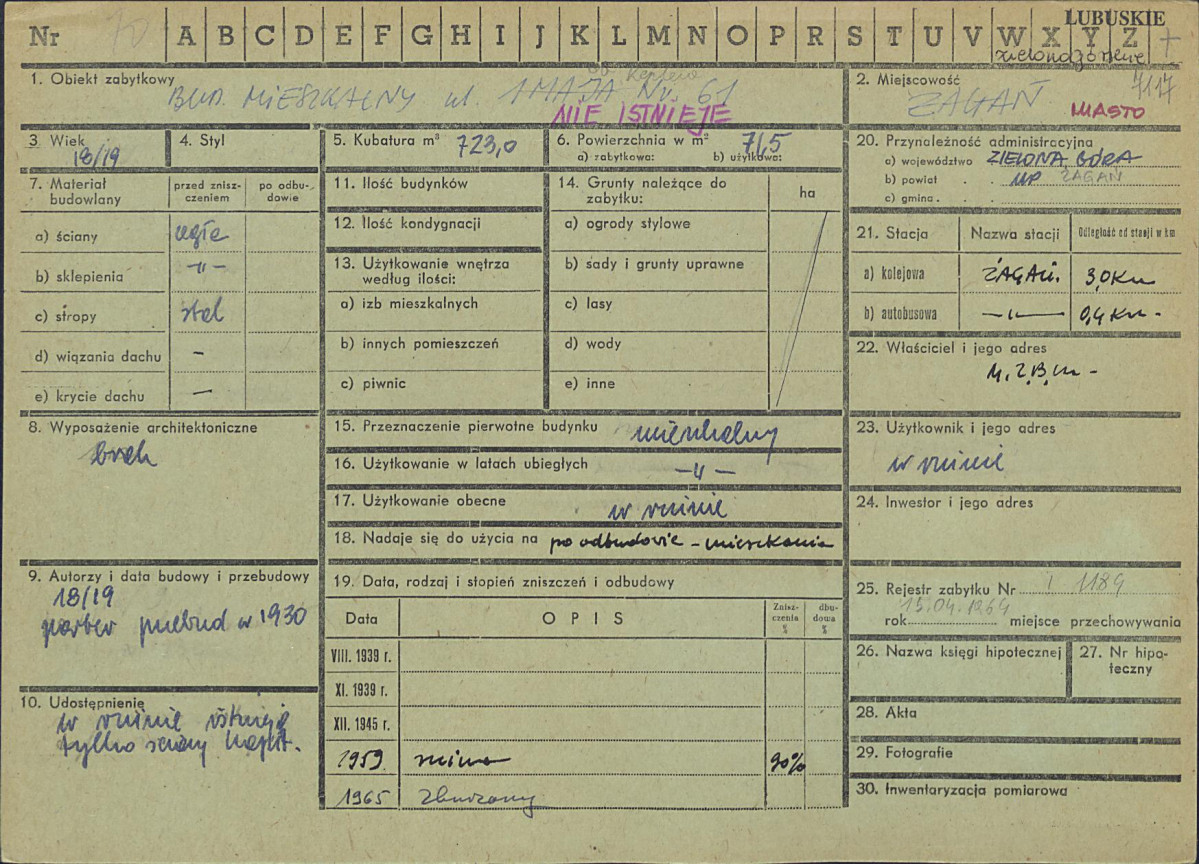 LUBUSKIE
Nr 70 A B C D E F G H I J K L M N O P R S T U V W X Y Z +
zielonogórskie
1. Obiekt zabytkowy
BUD. MIESZKALNY ul. 1 MAJA Nr. 61
NIE ISTNIEJE
2. Miejscowość
7117
ŻAGAŃ MIASTO
3 Wiek
18/19
4. Styl
5. Kubatura m³ 723,0
6. Powierzchnia w m² 76,5
a) zabytkowa: b) użytkowa:
7. Materiał budowlany
przed znisz-czeniem
po odbu-dowie
a) ściany cegła
b) sklepienia -"-
c) stropy stal
d) wiązania dachu -
e) krycie dachu -
8. Wyposażenie architektoniczne
brak
9. Autorzy i data budowy i przebudowy
18/19
parter przebud w 1930
10. Udostępnienie
w ruinie istnieją
tylko ściany kapit.
11. Ilość budynków
12. Ilość kondygnacji
13. Użytkowanie wnętrza według ilości:
a) izb mieszkalnych
b) innych pomieszczeń
c) piwnic
14. Grunty należące do zabytku:
ha
a) ogrody stylowe
b) sady i grunty uprawne
c) lasy
d) wody
e) inne
15. Przeznaczenie pierwotne budynku mieszkalny
16. Użytkowanie w latach ubiegłych -"-
17. Użytkowanie obecne w ruinie
18. Nadaje się do użycia na po odbudowie - mieszkania
19. Data, rodzaj i stopień zniszczeń i odbudowy
Data OPIS Znisz-czenia % dbu-dowa %
VIII. 1939 r.
XI. 1939 r.
XII. 1945 r.
1959 ruina 90%
1965 zburzony
20. Przynależność administracyjna
a) województwo ZIELONA GÓRA
b) powiat MP ŻAGAŃ
c) gmina
21. Stacja Nazwa stacji Odległość od stacji w km
a) kolejowa ŻAGAŃ. 3,0 Km
b) autobusowa -"- 0,4 Km -
22. Właściciel i jego adres
M.Z.B.M -
23. Użytkownik i jego adres
w ruinie
24. Inwestor i jego adres
25. Rejestr zabytku Nr I 1189
15.04.1964
rok miejsce przechowywania
26. Nazwa księgi hipotecznej
27. Nr hipo-teczny
28. Akta
29. Fotografie
30. Inwentaryzacja pomiarowa